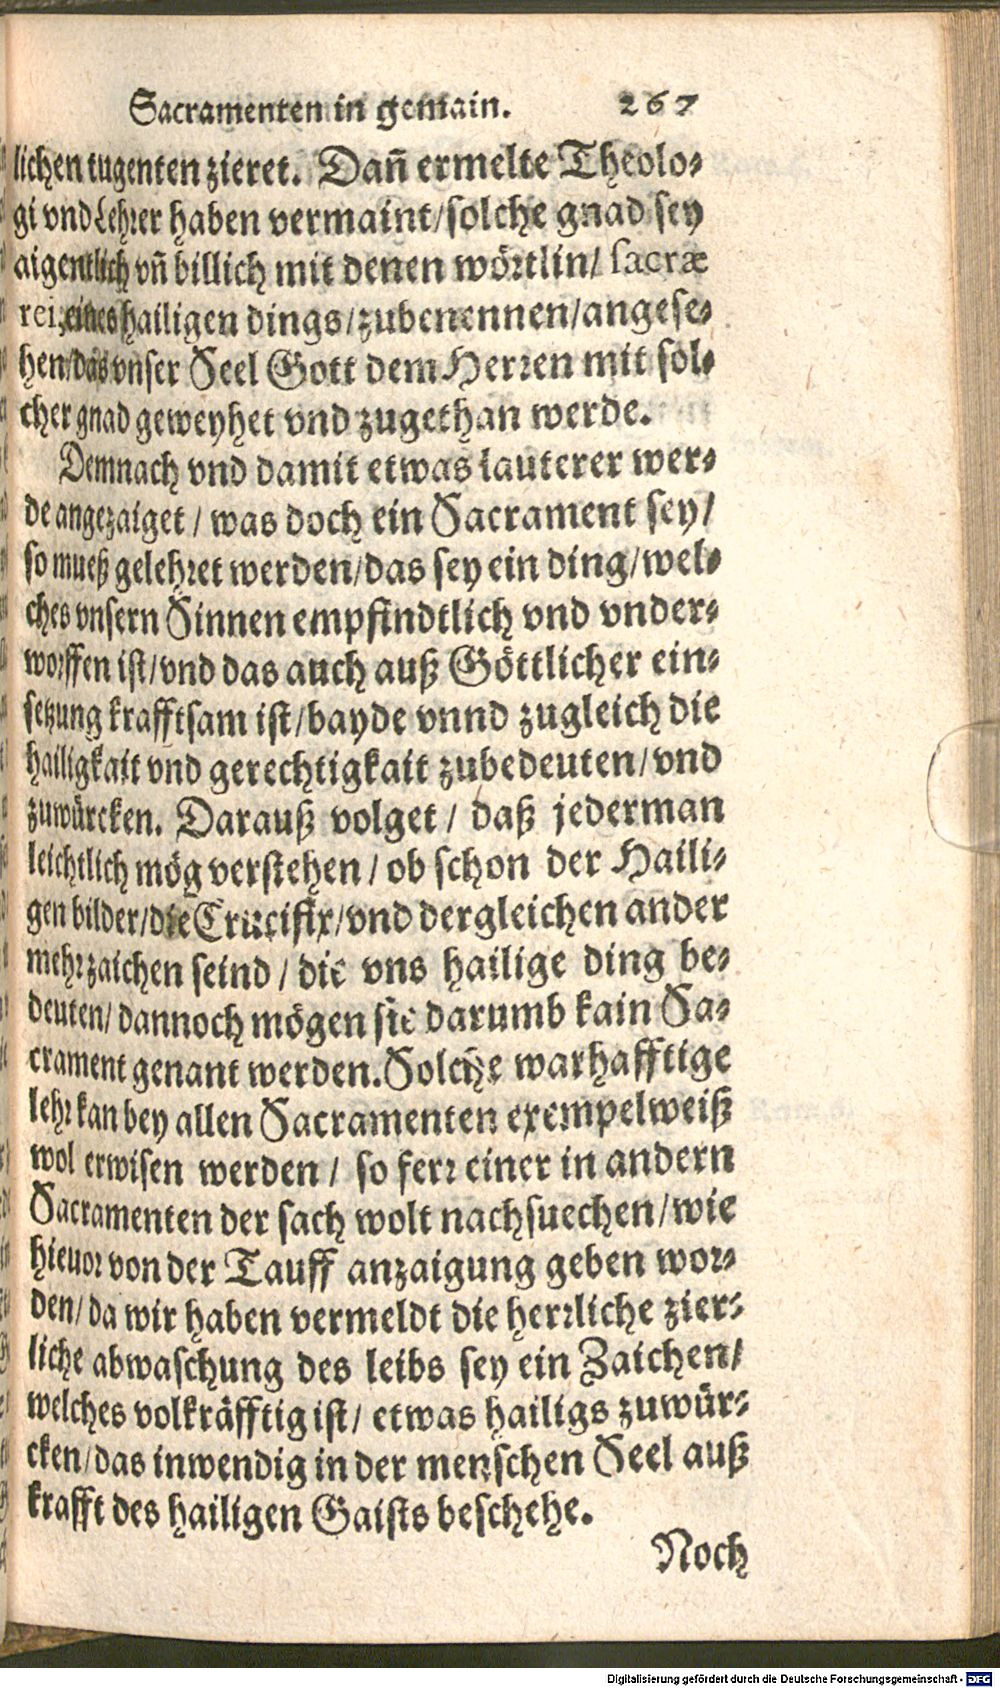 Sacramenten in gemain. 267
lichen tugenten zieret. Dañ ermelte Theolo⸗
gi vnd Lehrer haben vermaint/ solche gnad sey
aigentlich vñ billich mit denen wörtlin/ sacræ
rei, eines hailigen dings/ zubenennen/ angese⸗
hen/ das vnser Seel Gott dem Herren mit sol⸗
cher gnad geweyhet vnd zugethan werde.
Demnach vnd damit etwas lauterer wer⸗
de angezaiget / was doch ein Sacrament sey/
so mueß gelehret werden/ das sey ein ding/ wel⸗
ches vnsern Sinnen empfindtlich vnd vnder⸗
worffen ist/ vnd das auch auß Göttlicher ein⸗
setzung krafftsam ist/ bayde vnnd zugleich die
hailigkait vnd gerechtigkait zubedeuten/ vnd
zuwürcken. Darauß volget / daß jederman
leichtlich mög verstehen / ob schon der Haili⸗
gen bilder/ die Crucifix/ vnd dergleichen ander
mehr zaichen seind / die vns hailige ding be⸗
deuten/ dannoch mögen sie darumb kain Sa⸗
crament genant werden. Solche warhafftige
lehr kan bey allen Sacramenten exempelweiß
wol erwisen werden / so ferr einer in andern
Sacramenten der sach wolt nachsuechen/ wie
hieuor von der Tauff anzaigung geben wor⸗
den/ da wir haben vermeldt die herrliche zier⸗
liche abwaschung des leibs sey ein Zaichen/
welches volkräfftig ist/ etwas hailigs zuwür⸗
cken/ das inwendig in der menschen Seel auß
krafft des hailigen Gaists beschehe.
Noch
Digitalisierung gefördert durch die Deutsche Forschungsgemeinschaft - DFG